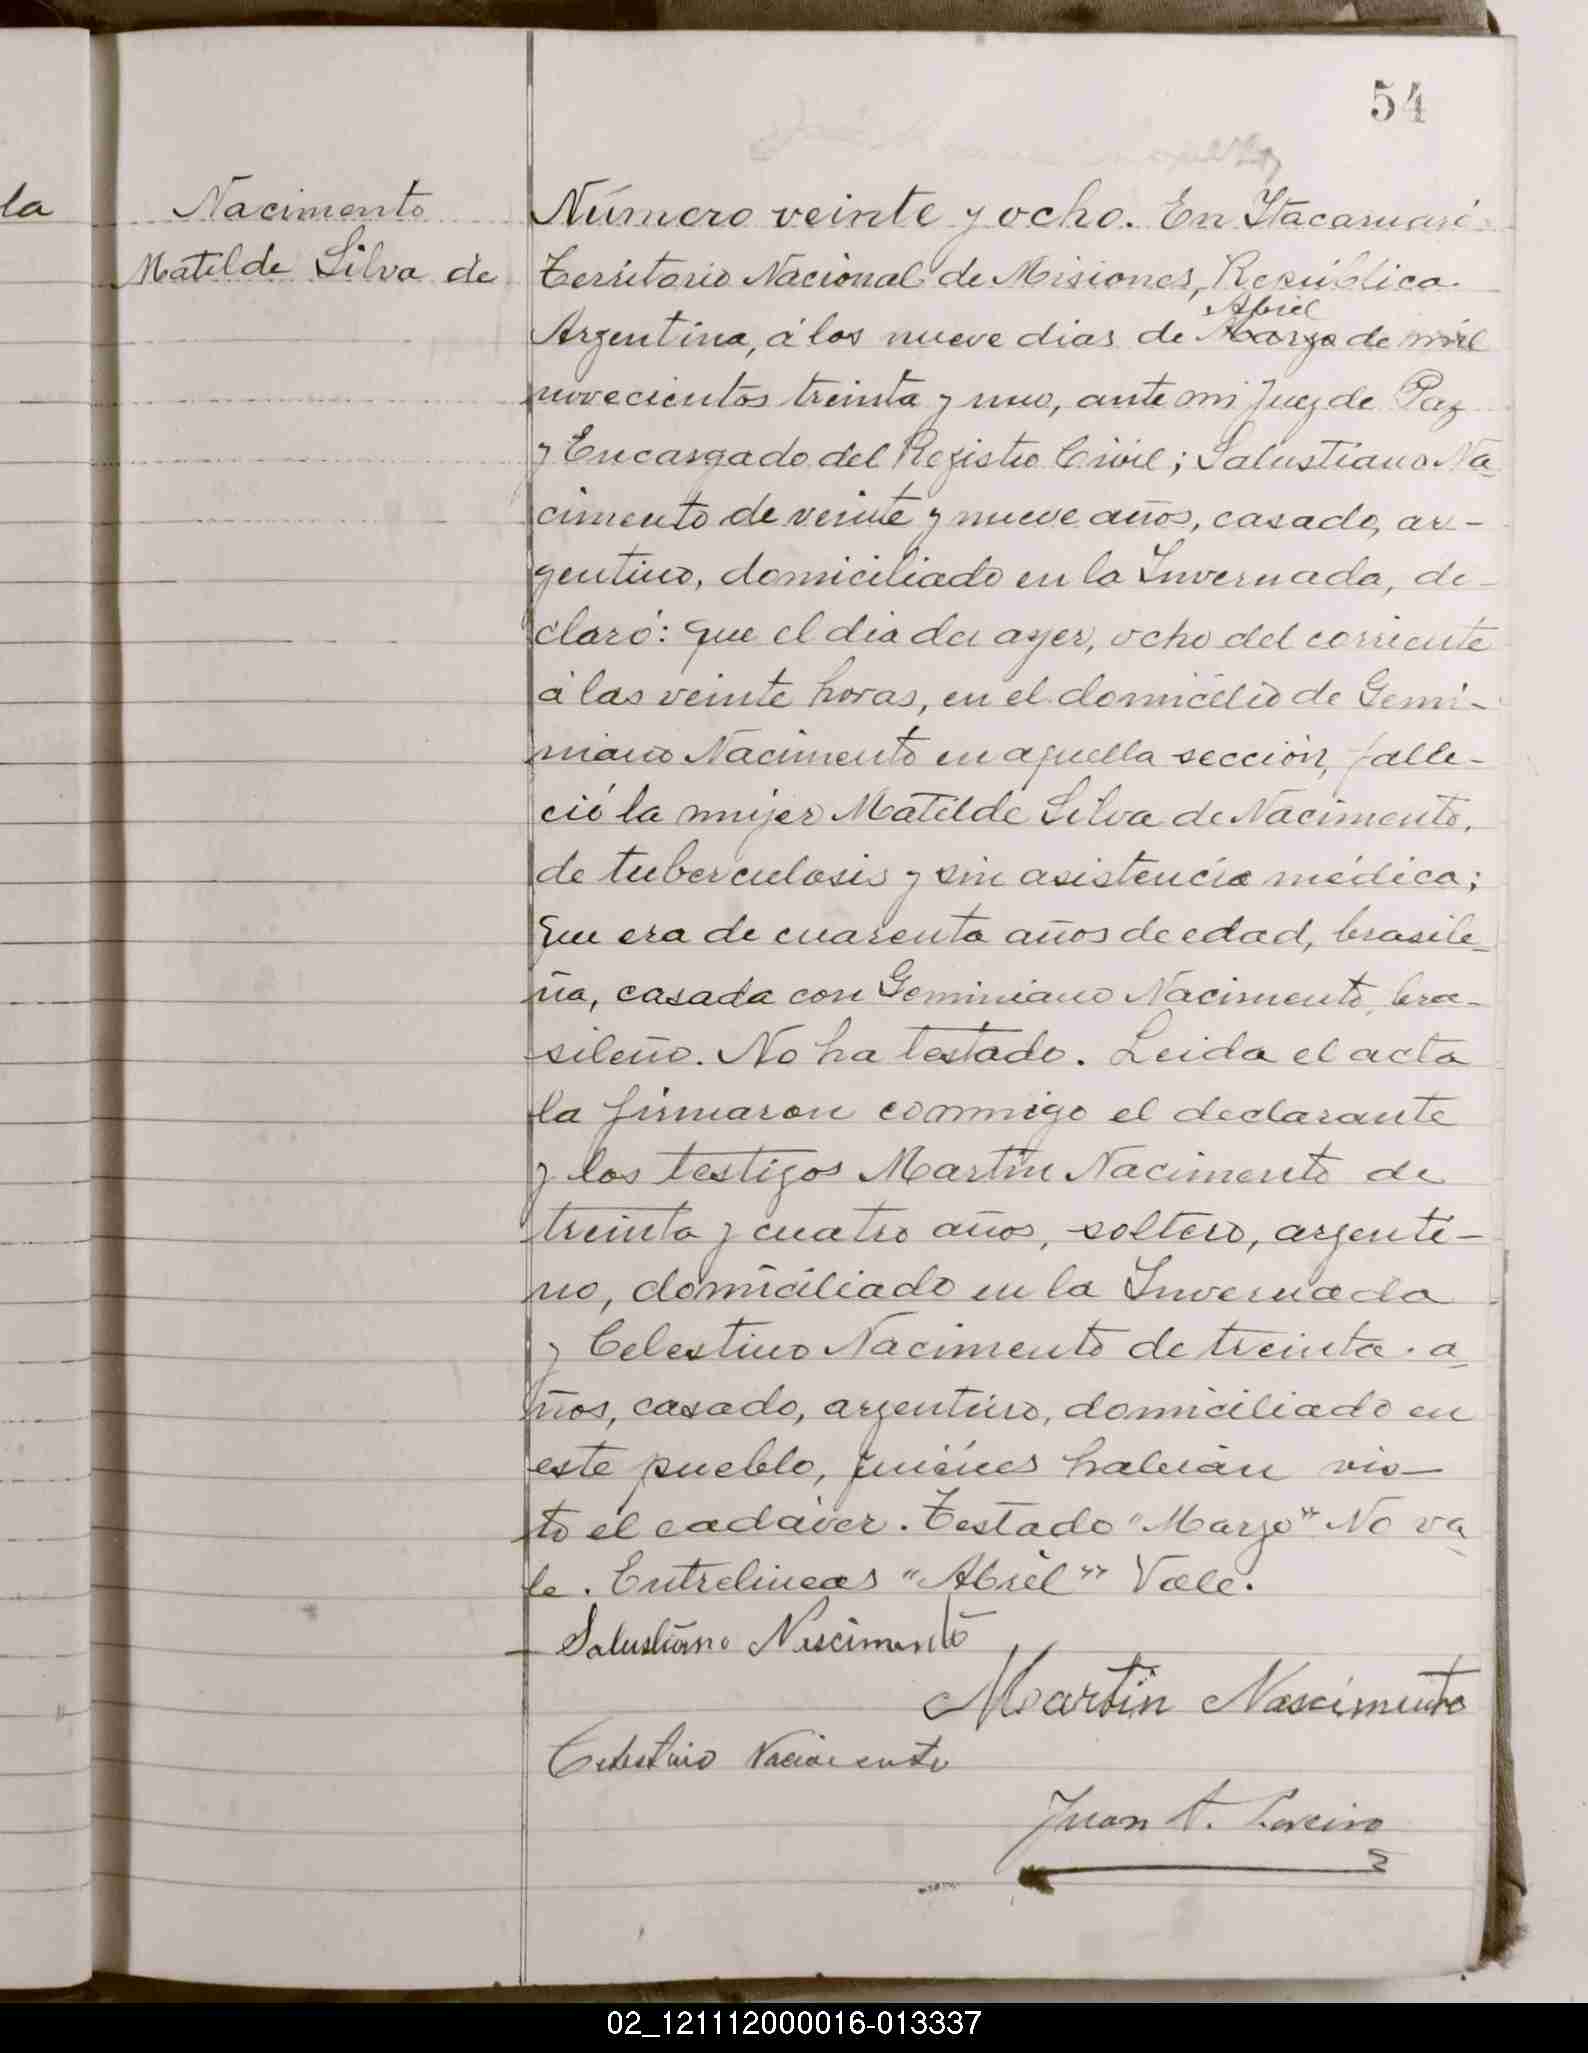 54
la
Nacimento
Matilde Silva de
Número veinte y ocho. En Itacaruaré
Territorio Nacional de Misiones, República
Abril
Argentina, á los nueve dias de Marzo de mil
novecientos treinta y uno, ante mi Juez de Paz
y Encargado del Registro Civil; Salustiano Na-
cimento de veinte y nueve años, casado, ar-
gentino, domiciliado en la Invernada, de-
claró: que el dia de ayer, ocho del corriente
á las veinte horas, en el domicilio de Gemi-
niano Nacimento en aquella sección, falle-
ció la mujer Matilde Silva de Nacimento,
de tuberculosis y sin asistencia médica;
Que era de cuarenta años de edad, brasile-
ña, casada con Geminiano Nacimento, bra-
sileño. No ha testado. Leida el acta
la firmaron conmigo el declarante
y los testigos Martin Nacimento de
treinta y cuatro años, soltero, argenti-
no, domiciliado en la Invernada
y Celestino Nacimento de treinta a-
ños, casado, argentino, domiciliado en
este pueblo, quiénes habián vis-
to el cadáver. Testado "Marzo" No va-
le. Entrelineas "Abril" Vale.
Salustiano Nascimento
Martin Nascimento
Celestino Nacimento
Juan A.
02_121112000016-013337